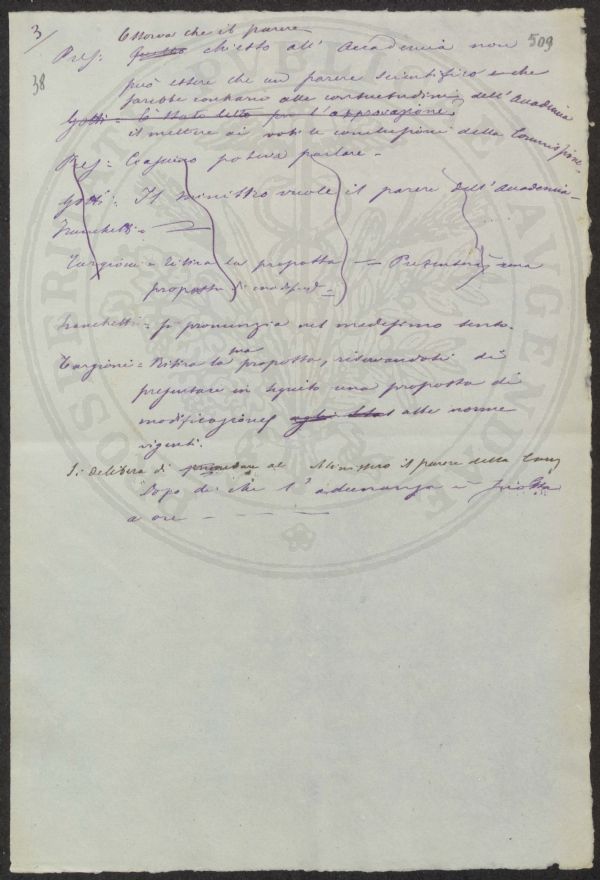 3/
509
38
Osserva che il parere
Pres: Questo chiesto all' Accademia non
può essere che un parere scientifico e che
sarebbe contrario alle consuetudini dell'Accademia
Gotti = È stato letto per l'approvazione.
il mettere ai voti le conclusioni della Commissione.
Pres = Ciascuno potrà parlare -
Gotti: Il ministro vuole il parere dell'Accademia -
Franchetti =
Targioni = ritira la proposta — Presenterà una
proposta di modif.
Franchetti = Si pronunzia nel medesimo senso.
Targioni = Ritira la sua proposta, riservandosi di
presentare in seguito una proposta di
modificazione alle norme
vigenti.
Si delibera di al Ministero il parere della Com
Dopo di che l'adunanza è sciolta
a ore — — —